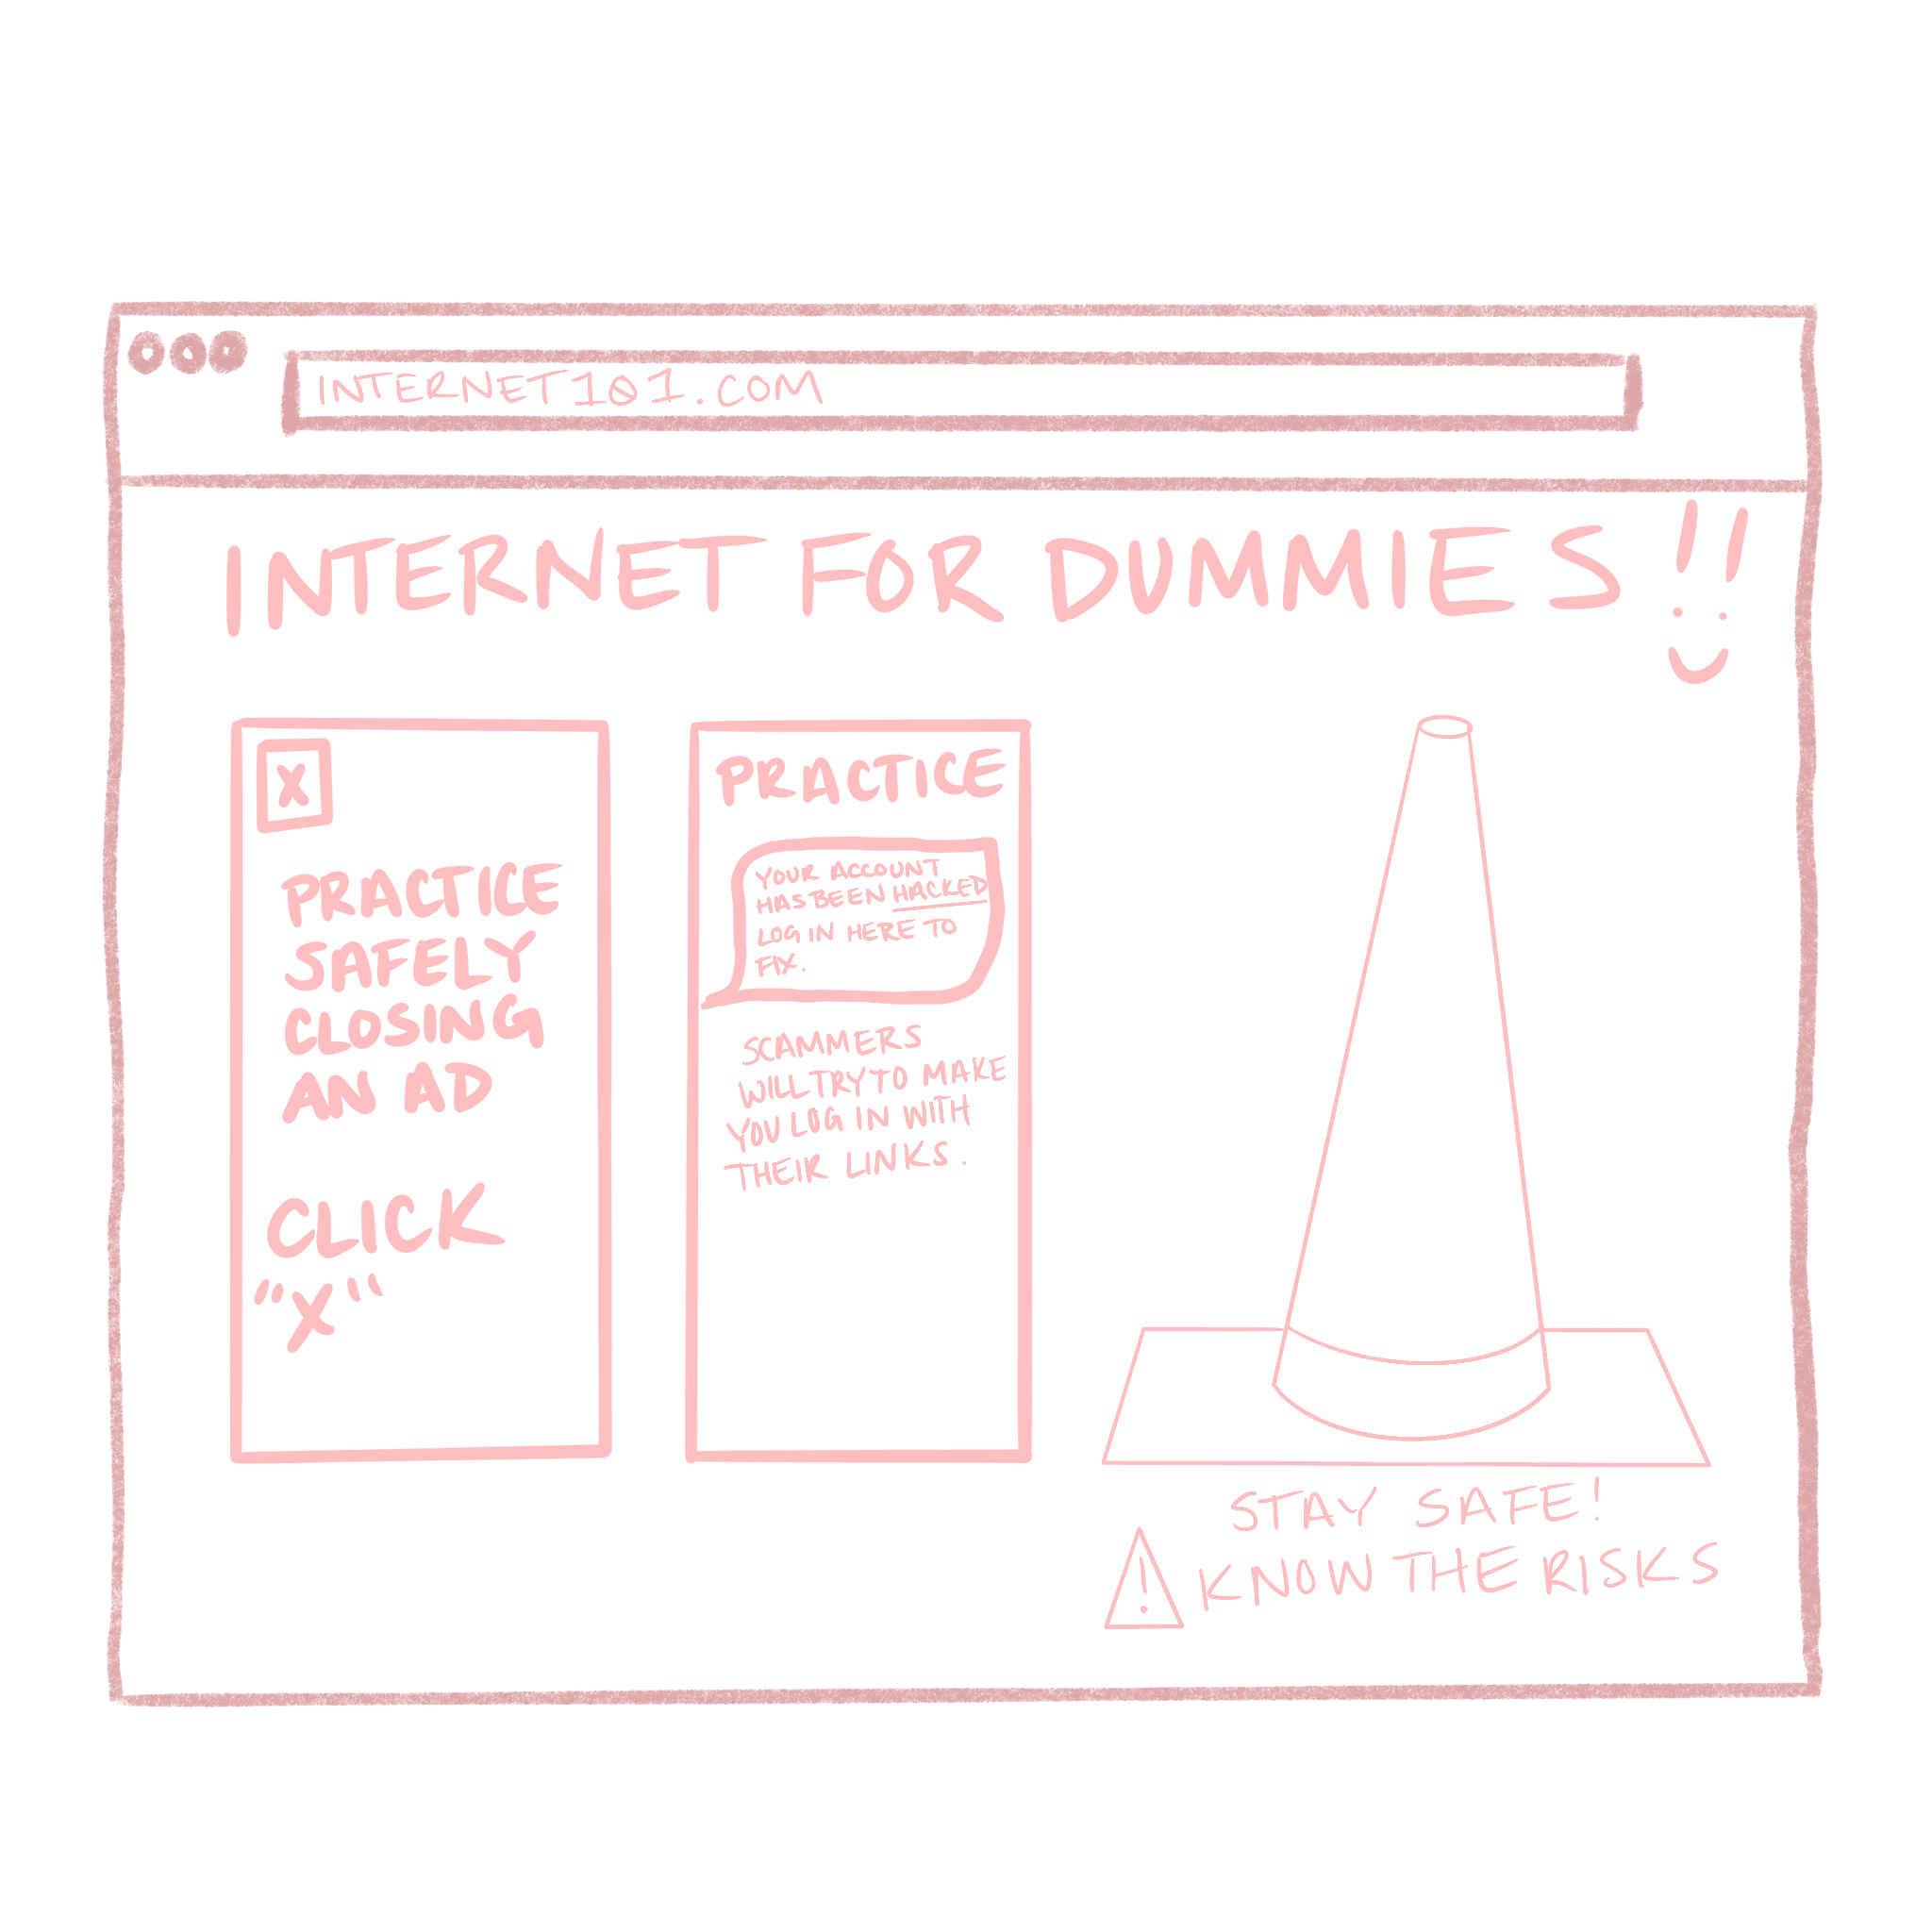 INTERNET101.COM
INTERNET FOR DUMMIES!!
X
PRACTICE
SAFELY
CLOSING
AN AD
CLICK
"X"
PRACTICE
YOUR ACCOUNT
HAS BEEN HACKED
LOG IN HERE TO
FIX.
SCAMMERS
WILL TRY TO MAKE
YOU LOG IN WITH
THEIR LINKS.
STAY SAFE!
! KNOW THE RISKS